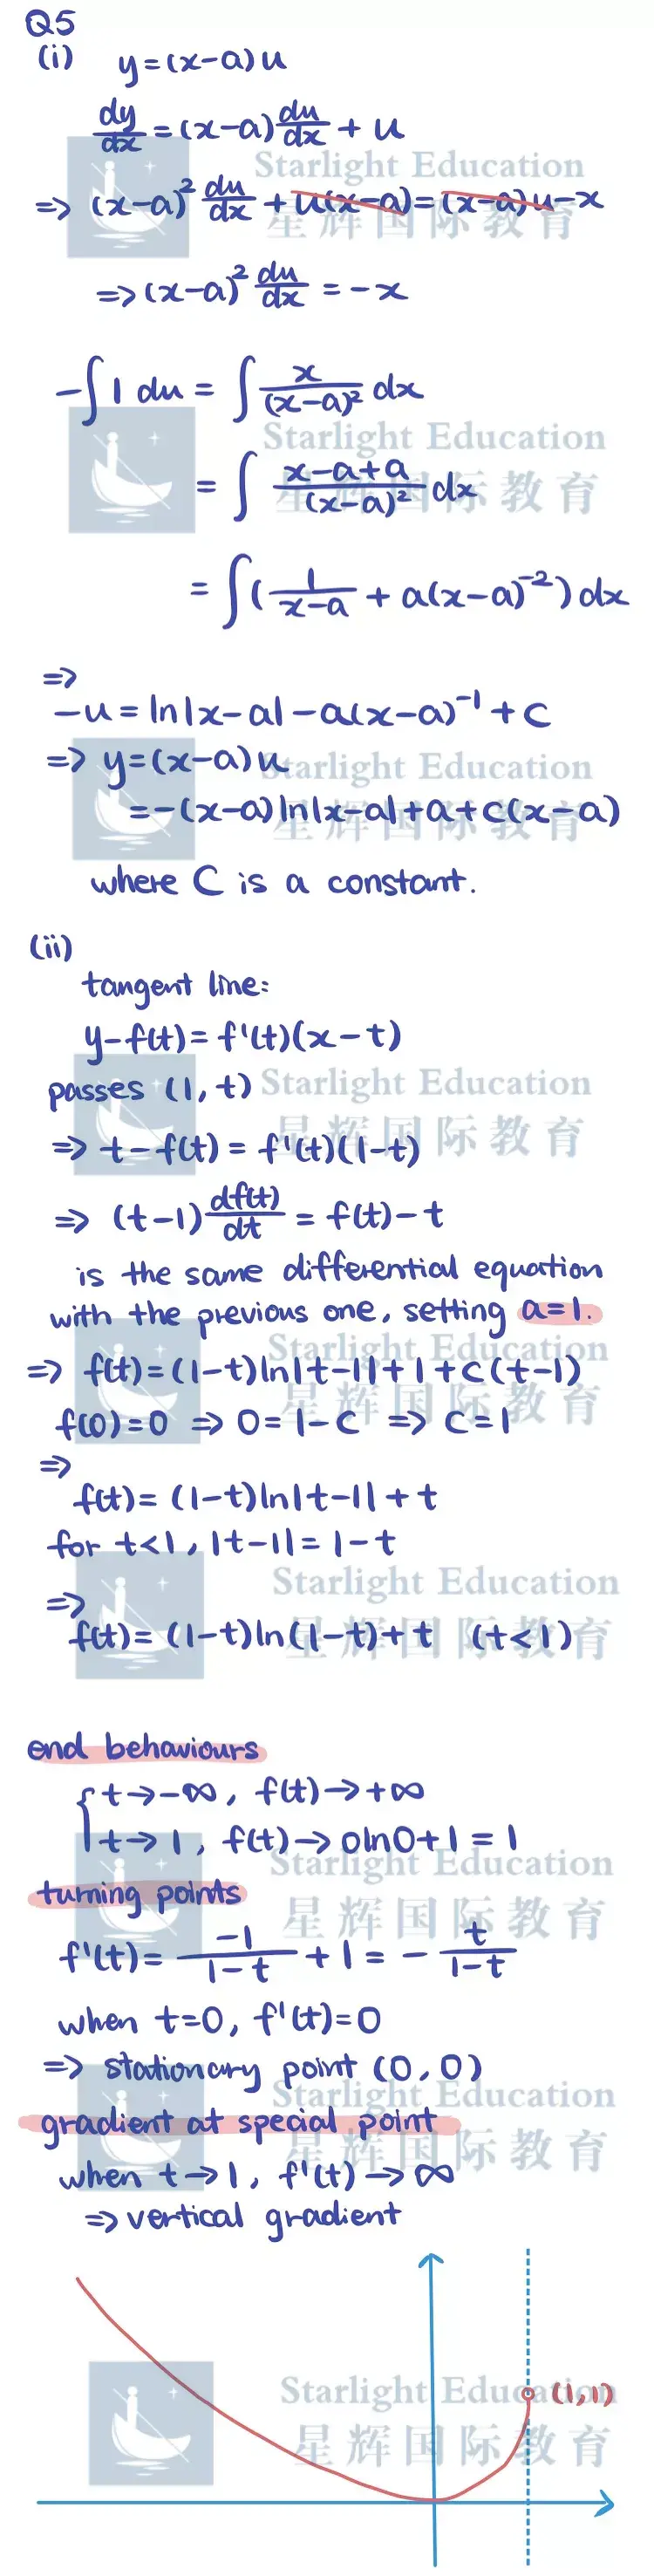 Q5
(i) y=(x-a)u
dy/dx = (x-a) du/dx + u
Starlight Education
⇒ (x-a)² du/dx + u(x-a) = (x-a)u - x
星辉国际教育
⇒ (x-a)² du/dx = -x
-∫ 1 du = ∫ x/(x-a)² dx
Starlight Education
= ∫ (x-a+a)/(x-a)² dx
星辉国际教育
= ∫ ( 1/(x-a) + a(x-a)⁻² ) dx
⇒
-u = ln|x-a| - a(x-a)⁻¹ + c
⇒ y=(x-a)u
Starlight Education
= -(x-a)ln|x-a| + a + c(x-a)
星辉国际教育
where C is a constant.
(ii)
tangent line:
y-f(t) = f'(t)(x-t)
passes (1, t)
Starlight Education
星辉国际教育
⇒ t-f(t) = f'(t)(1-t)
⇒ (t-1) df(t)/dt = f(t)-t
is the same differential equation
with the previous one, setting a=1.
Starlight Education
⇒ f(t) = (1-t)ln|t-1| + 1 + c(t-1)
星辉国际教育
f(0)=0 ⇒ 0=1-c ⇒ c=1
⇒
f(t) = (1-t)ln|t-1| + t
for t<1, |t-1| = 1-t
Starlight Education
⇒
星辉国际教育
f(t) = (1-t)ln(1-t) + t (t<1)
end behaviours
{ t→-∞, f(t)→+∞
t→1, f(t)→0ln0+1 = 1
Starlight Education
turning points
星辉国际教育
f'(t) = -1/(1-t) + 1 = - t/(1-t)
when t=0, f'(t)=0
⇒ stationary point (0,0)
Starlight Education
gradient at special point
星辉国际教育
when t→1, f'(t)→∞
⇒ vertical gradient
Starlight Education
(1,1)
星辉国际教育